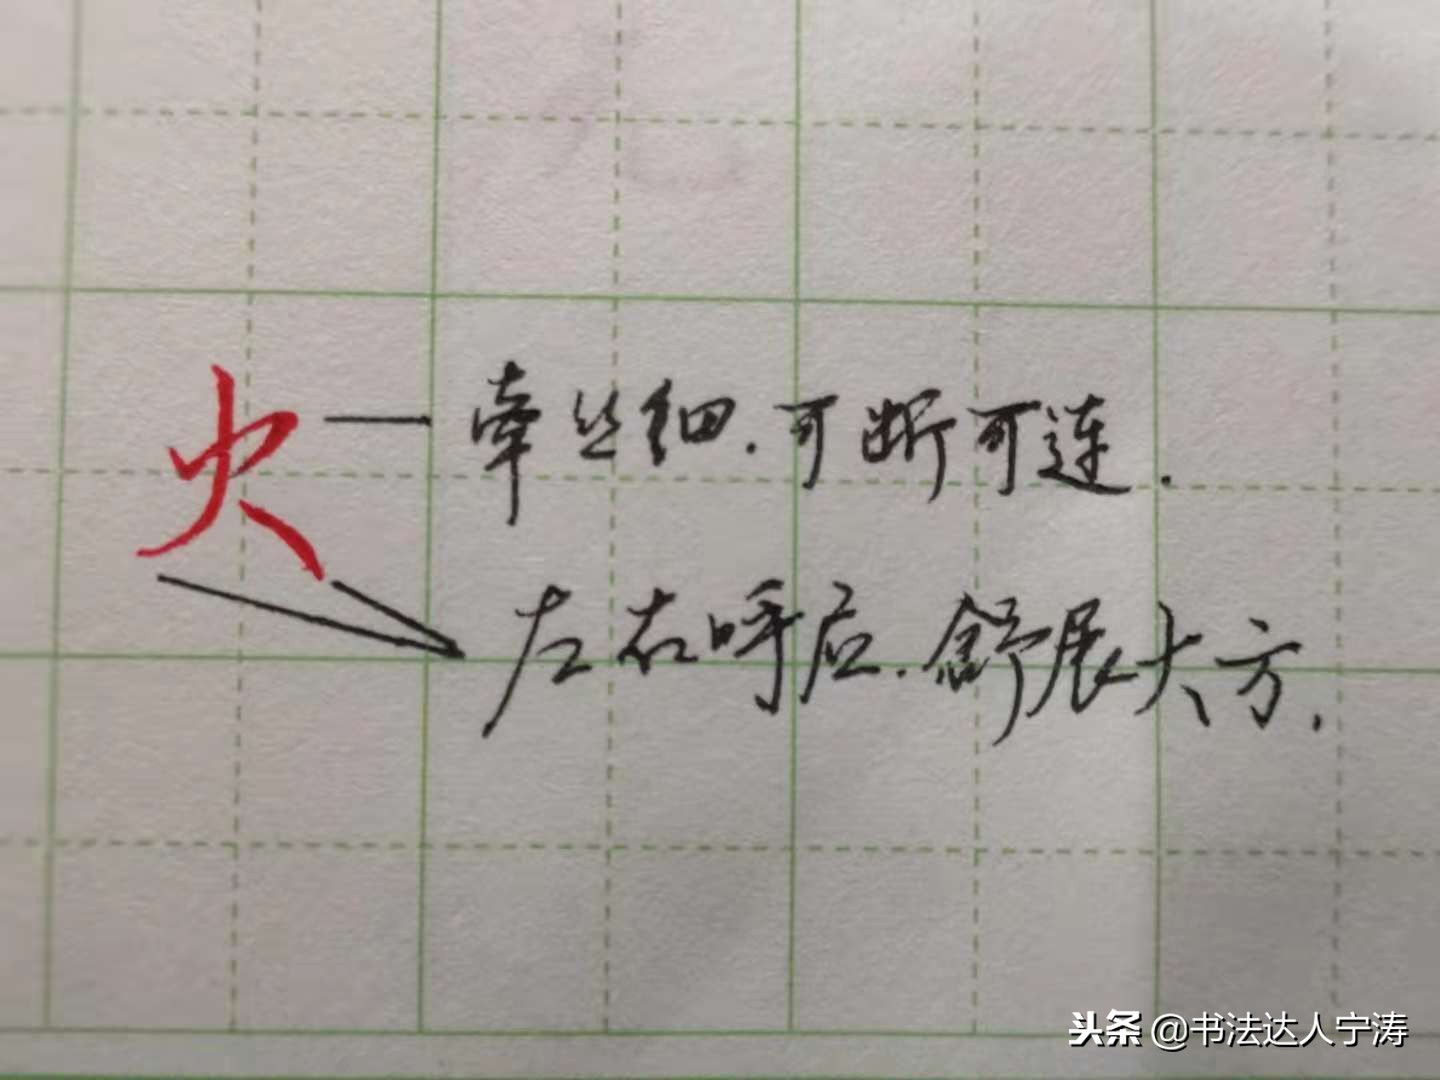 火
牵丝细.可断可连.
左右呼应.舒展大方.
头条 @书法达人宁涛